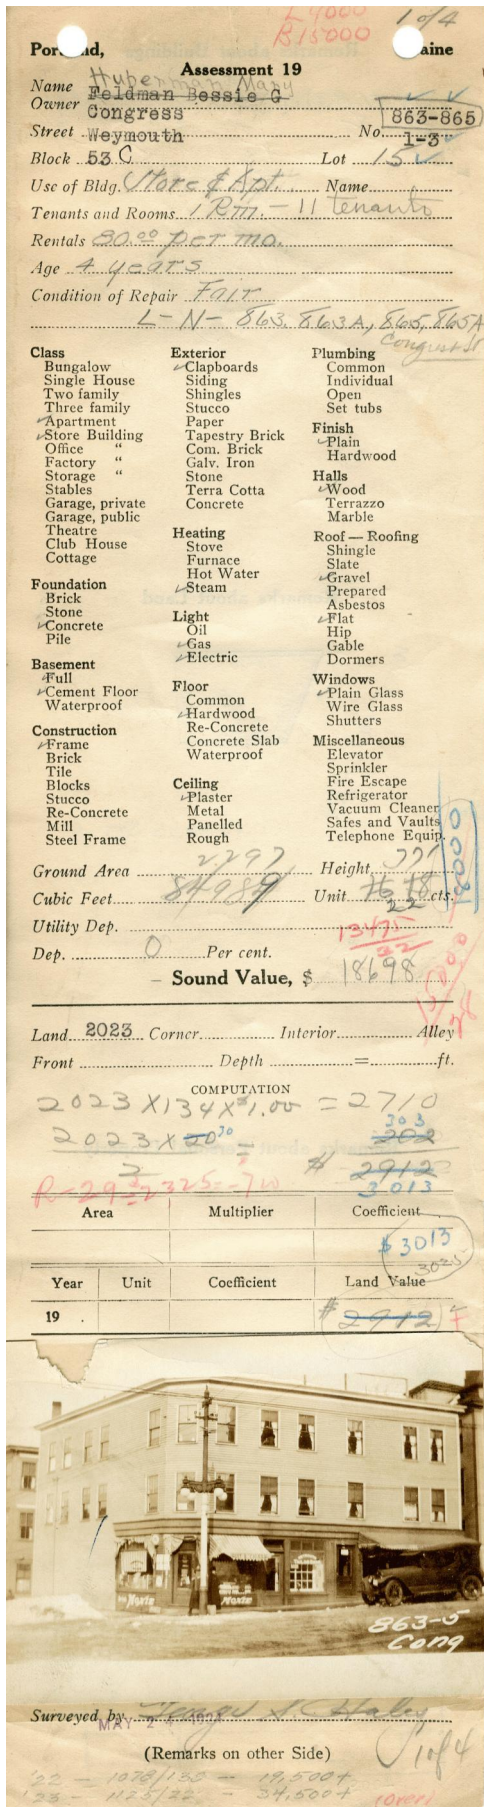 L 4000 1 of 4
B 15000
Portland, Maine
Assessment 19
Huberman Mary
Name Feldman Bessie G
Owner Congress 863-865
Street Weymouth No. 1-3
Block 53 C Lot 15
Use of Bldg. Store & Apt. Name
Tenants and Rooms 1 Rm. - 11 tenants
Rentals 80.00 per mo.
Age 4 years
Condition of Repair Fair
L-N- 863, 863A, 865, 865A
Congress St
Class
Bungalow
Single House
Two family
Three family
Apartment
Store Building
Office "
Factory "
Storage "
Stables
Garage, private
Garage, public
Theatre
Club House
Cottage
Foundation
Brick
Stone
Concrete
Pile
Basement
Full
Cement Floor
Waterproof
Construction
Frame
Brick
Tile
Blocks
Stucco
Re-Concrete
Mill
Steel Frame
Exterior
Clapboards
Siding
Shingles
Stucco
Paper
Tapestry Brick
Com. Brick
Galv. Iron
Stone
Terra Cotta
Concrete
Heating
Stove
Furnace
Hot Water
Steam
Light
Oil
Gas
Electric
Floor
Common
Hardwood
Re-Concrete
Concrete Slab
Waterproof
Ceiling
Plaster
Metal
Panelled
Rough
Plumbing
Common
Individual
Open
Set tubs
Finish
Plain
Hardwood
Halls
Wood
Terrazzo
Marble
Roof — Roofing
Shingle
Slate
Gravel
Prepared
Asbestos
Flat
Hip
Gable
Dormers
Windows
Plain Glass
Wire Glass
Shutters
Miscellaneous
Elevator
Sprinkler
Fire Escape
Refrigerator
Vacuum Cleaner
Safes and Vaults
Telephone Equip.
Ground Area 2297 Height
Cubic Feet 84989 Unit 18 cts.
22
Utility Dep.
13475
22
Dep. 0 Per cent.
Sound Value, $ 18698
Land 2023 Corner Interior Alley
Front Depth = ft.
COMPUTATION
2023 X 134 X $1.00 = 2710
303
2023 X 20 30 = 202
2 $ 2912
3013
Area Multiplier Coefficient
$ 3013
3025
Year Unit Coefficient Land Value
19 $ 2912
Moxie
Moxie
863-5
Cong
Surveyed by George S. Haley
MAY 2
(Remarks on other Side)
1 of 4
'22 - 1078/138 - 19,500+
'23 - 1125/22 - 34,500+
(Over)